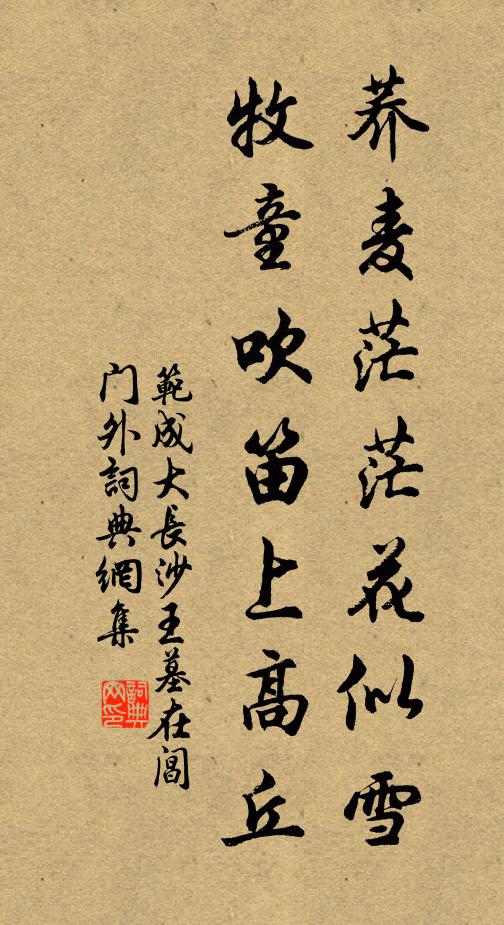 荞麦茫茫花似雪
牧童吹笛上高丘
範成大長沙王墓在閶
门外詞典網集
詞典
网印